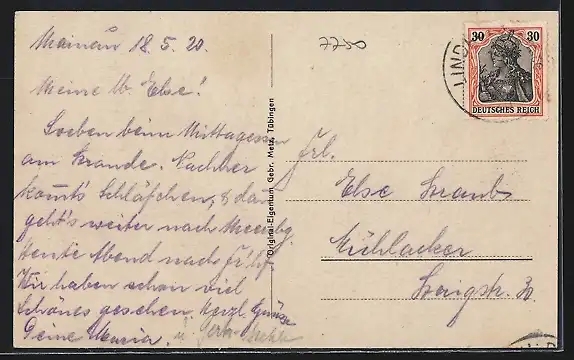 Mainau 18.5.20.
Meine lb. Else!
Soeben beim Mittagessen
am Strande. Nachher
kommt's Schläfchen, & dann
geht's weiter nach Meersbg.
Heute Abend nach
Wir haben schon viel
Schönes gesehen. Herzl. Grüsse
Deine Maria. u.
7750
30 30
DEUTSCHES REICH
LIND
Original-Eigentum Gebr. Metz, Tübingen
Frl.
Else Straub
Mühlacker